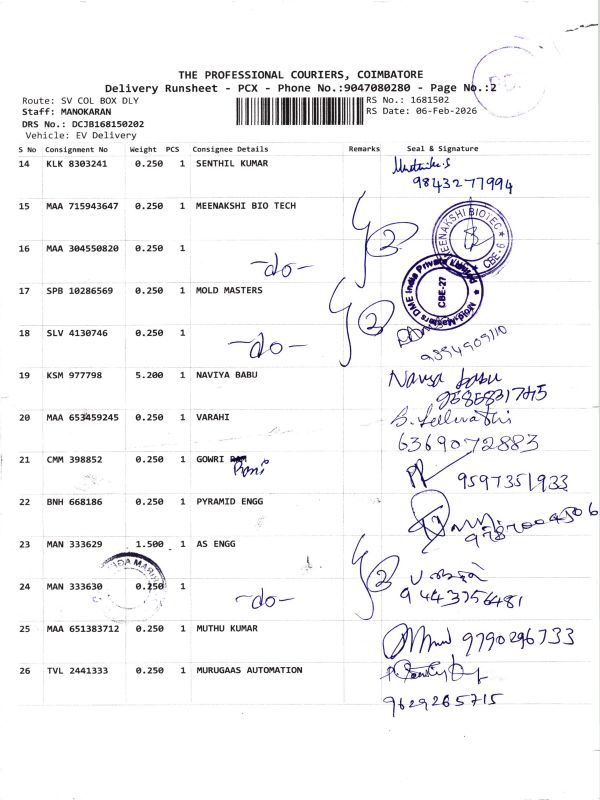 THE PROFESSIONAL COURIERS, COIMBATORE
Delivery Runsheet - PCX - Phone No.:9047080280 - Page No.:2
Route: SV COL BOX DLY
RS No.: 1681502
Staff: MANOKARAN
RS Date: 06-Feb-2026
DRS No.: DCJB168150202
Vehicle: EV Delivery
S No Consignment No Weight PCS Consignee Details Remarks Seal & Signature
14 KLK 8303241 0.250 1 SENTHIL KUMAR
9843277994
15 MAA 715943647 0.250 1 MEENAKSHI BIO TECH
MEENAKSHI BIOTEC ★ CBE-6 ★
2
16 MAA 304550820 0.250 1
-do-
Mold-Masters DME India Private Limited ★
CBE-27
17 SPB 10286569 0.250 1 MOLD MASTERS
2
18 SLV 4130746 0.250 1
-do-
19 KSM 977798 5.200 1 NAVIYA BABU
Navya babu
20 MAA 653459245 0.250 1 VARAHI
6369072883
21 CMM 398852 0.250 1 GOWRI
9597351933
22 BNH 668186 0.250 1 PYRAMID ENGG
23 MAN 333629 1.500 1 AS ENGG
2
24 MAN 333630 0.250 1
-do-
9443756481
25 MAA 651383712 0.250 1 MUTHU KUMAR
9790296733
26 TVL 2441333 0.250 1 MURUGAAS AUTOMATION
9629265715